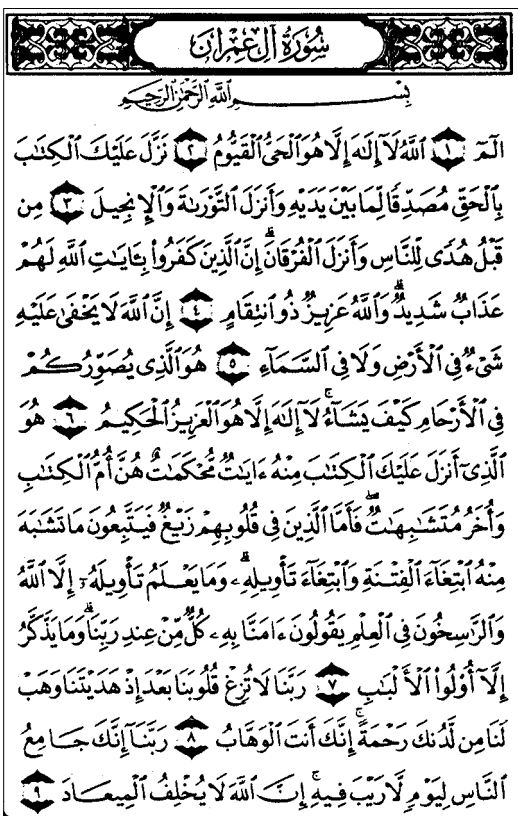 سُورَةُ آلِ عِمْرَانَ
بِسْمِ اللَّهِ الرَّحْمَٰنِ الرَّحِيمِ
الٓمٓ ١ ٱللَّهُ لَآ إِلَٰهَ إِلَّا هُوَ ٱلْحَىُّ ٱلْقَيُّومُ ٢ نَزَّلَ عَلَيْكَ ٱلْكِتَٰبَ
بِٱلْحَقِّ مُصَدِّقًا لِّمَا بَيْنَ يَدَيْهِ وَأَنزَلَ ٱلتَّوْرَىٰةَ وَٱلْإِنجِيلَ ٣ مِن
قَبْلُ هُدًى لِّلنَّاسِ وَأَنزَلَ ٱلْفُرْقَانَ ۗ إِنَّ ٱلَّذِينَ كَفَرُوا۟ بِـَٔايَٰتِ ٱللَّهِ لَهُمْ
عَذَابٌ شَدِيدٌ ۗ وَٱللَّهُ عَزِيزٌ ذُو ٱنتِقَامٍ ٤ إِنَّ ٱللَّهَ لَا يَخْفَىٰ عَلَيْهِ
شَىْءٌ فِى ٱلْأَرْضِ وَلَا فِى ٱلسَّمَآءِ ٥ هُوَ ٱلَّذِى يُصَوِّرُكُمْ
فِى ٱلْأَرْحَامِ كَيْفَ يَشَآءُ ۚ لَآ إِلَٰهَ إِلَّا هُوَ ٱلْعَزِيزُ ٱلْحَكِيمُ ٦ هُوَ
ٱلَّذِىٓ أَنزَلَ عَلَيْكَ ٱلْكِتَٰبَ مِنْهُ ءَايَٰتٌ مُّحْكَمَٰتٌ هُنَّ أُمُّ ٱلْكِتَٰبِ
وَأُخَرُ مُتَشَٰبِهَٰتٌ ۖ فَأَمَّا ٱلَّذِينَ فِى قُلُوبِهِمْ زَيْغٌ فَيَتَّبِعُونَ مَا تَشَٰبَهَ
مِنْهُ ٱبْتِغَآءَ ٱلْفِتْنَةِ وَٱبْتِغَآءَ تَأْوِيلِهِۦ ۗ وَمَا يَعْلَمُ تَأْوِيلَهُۥٓ إِلَّا ٱللَّهُ ۗ
وَٱلرَّٰسِخُونَ فِى ٱلْعِلْمِ يَقُولُونَ ءَامَنَّا بِهِۦ كُلٌّ مِّنْ عِندِ رَبِّنَا ۗ وَمَا يَذَّكَّرُ
إِلَّآ أُو۟لُوا۟ ٱلْأَلْبَٰبِ ٧ رَبَّنَا لَا تُزِغْ قُلُوبَنَا بَعْدَ إِذْ هَدَيْتَنَا وَهَبْ
لَنَا مِن لَّدُنكَ رَحْمَةً ۚ إِنَّكَ أَنتَ ٱلْوَهَّابُ ٨ رَبَّنَآ إِنَّكَ جَامِعُ
ٱلنَّاسِ لِيَوْمٍ لَّا رَيْبَ فِيهِ ۚ إِنَّ ٱللَّهَ لَا يُخْلِفُ ٱلْمِيعَادَ ٩